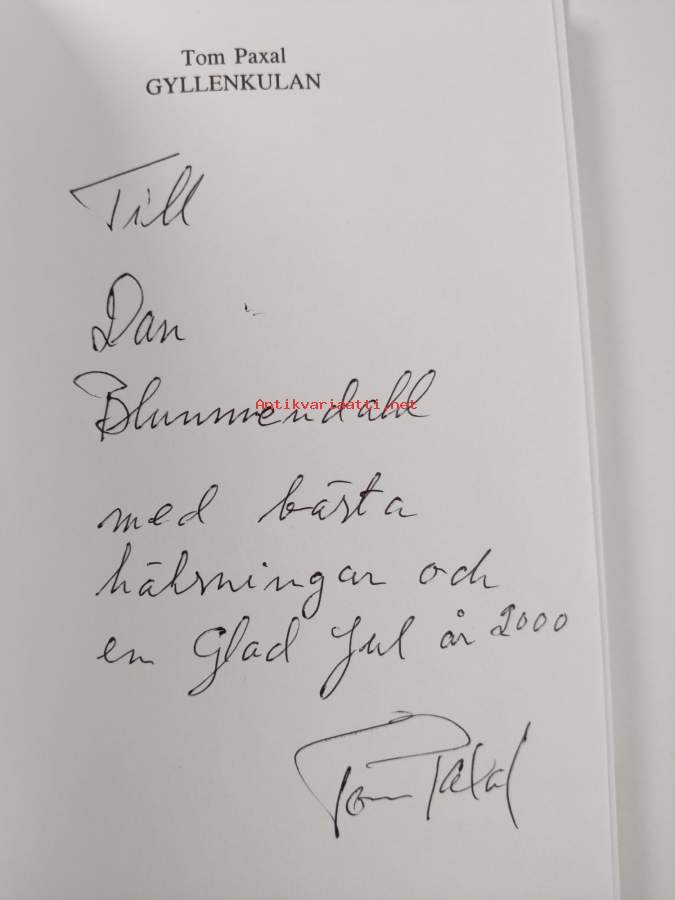 Tom Paxal
GYLLENKULAN
Till
Dan
Blummendahl
Antikvariaatti.net
med bästa
hälsningar och
en Glad Jul år 2000
Tom Paxal